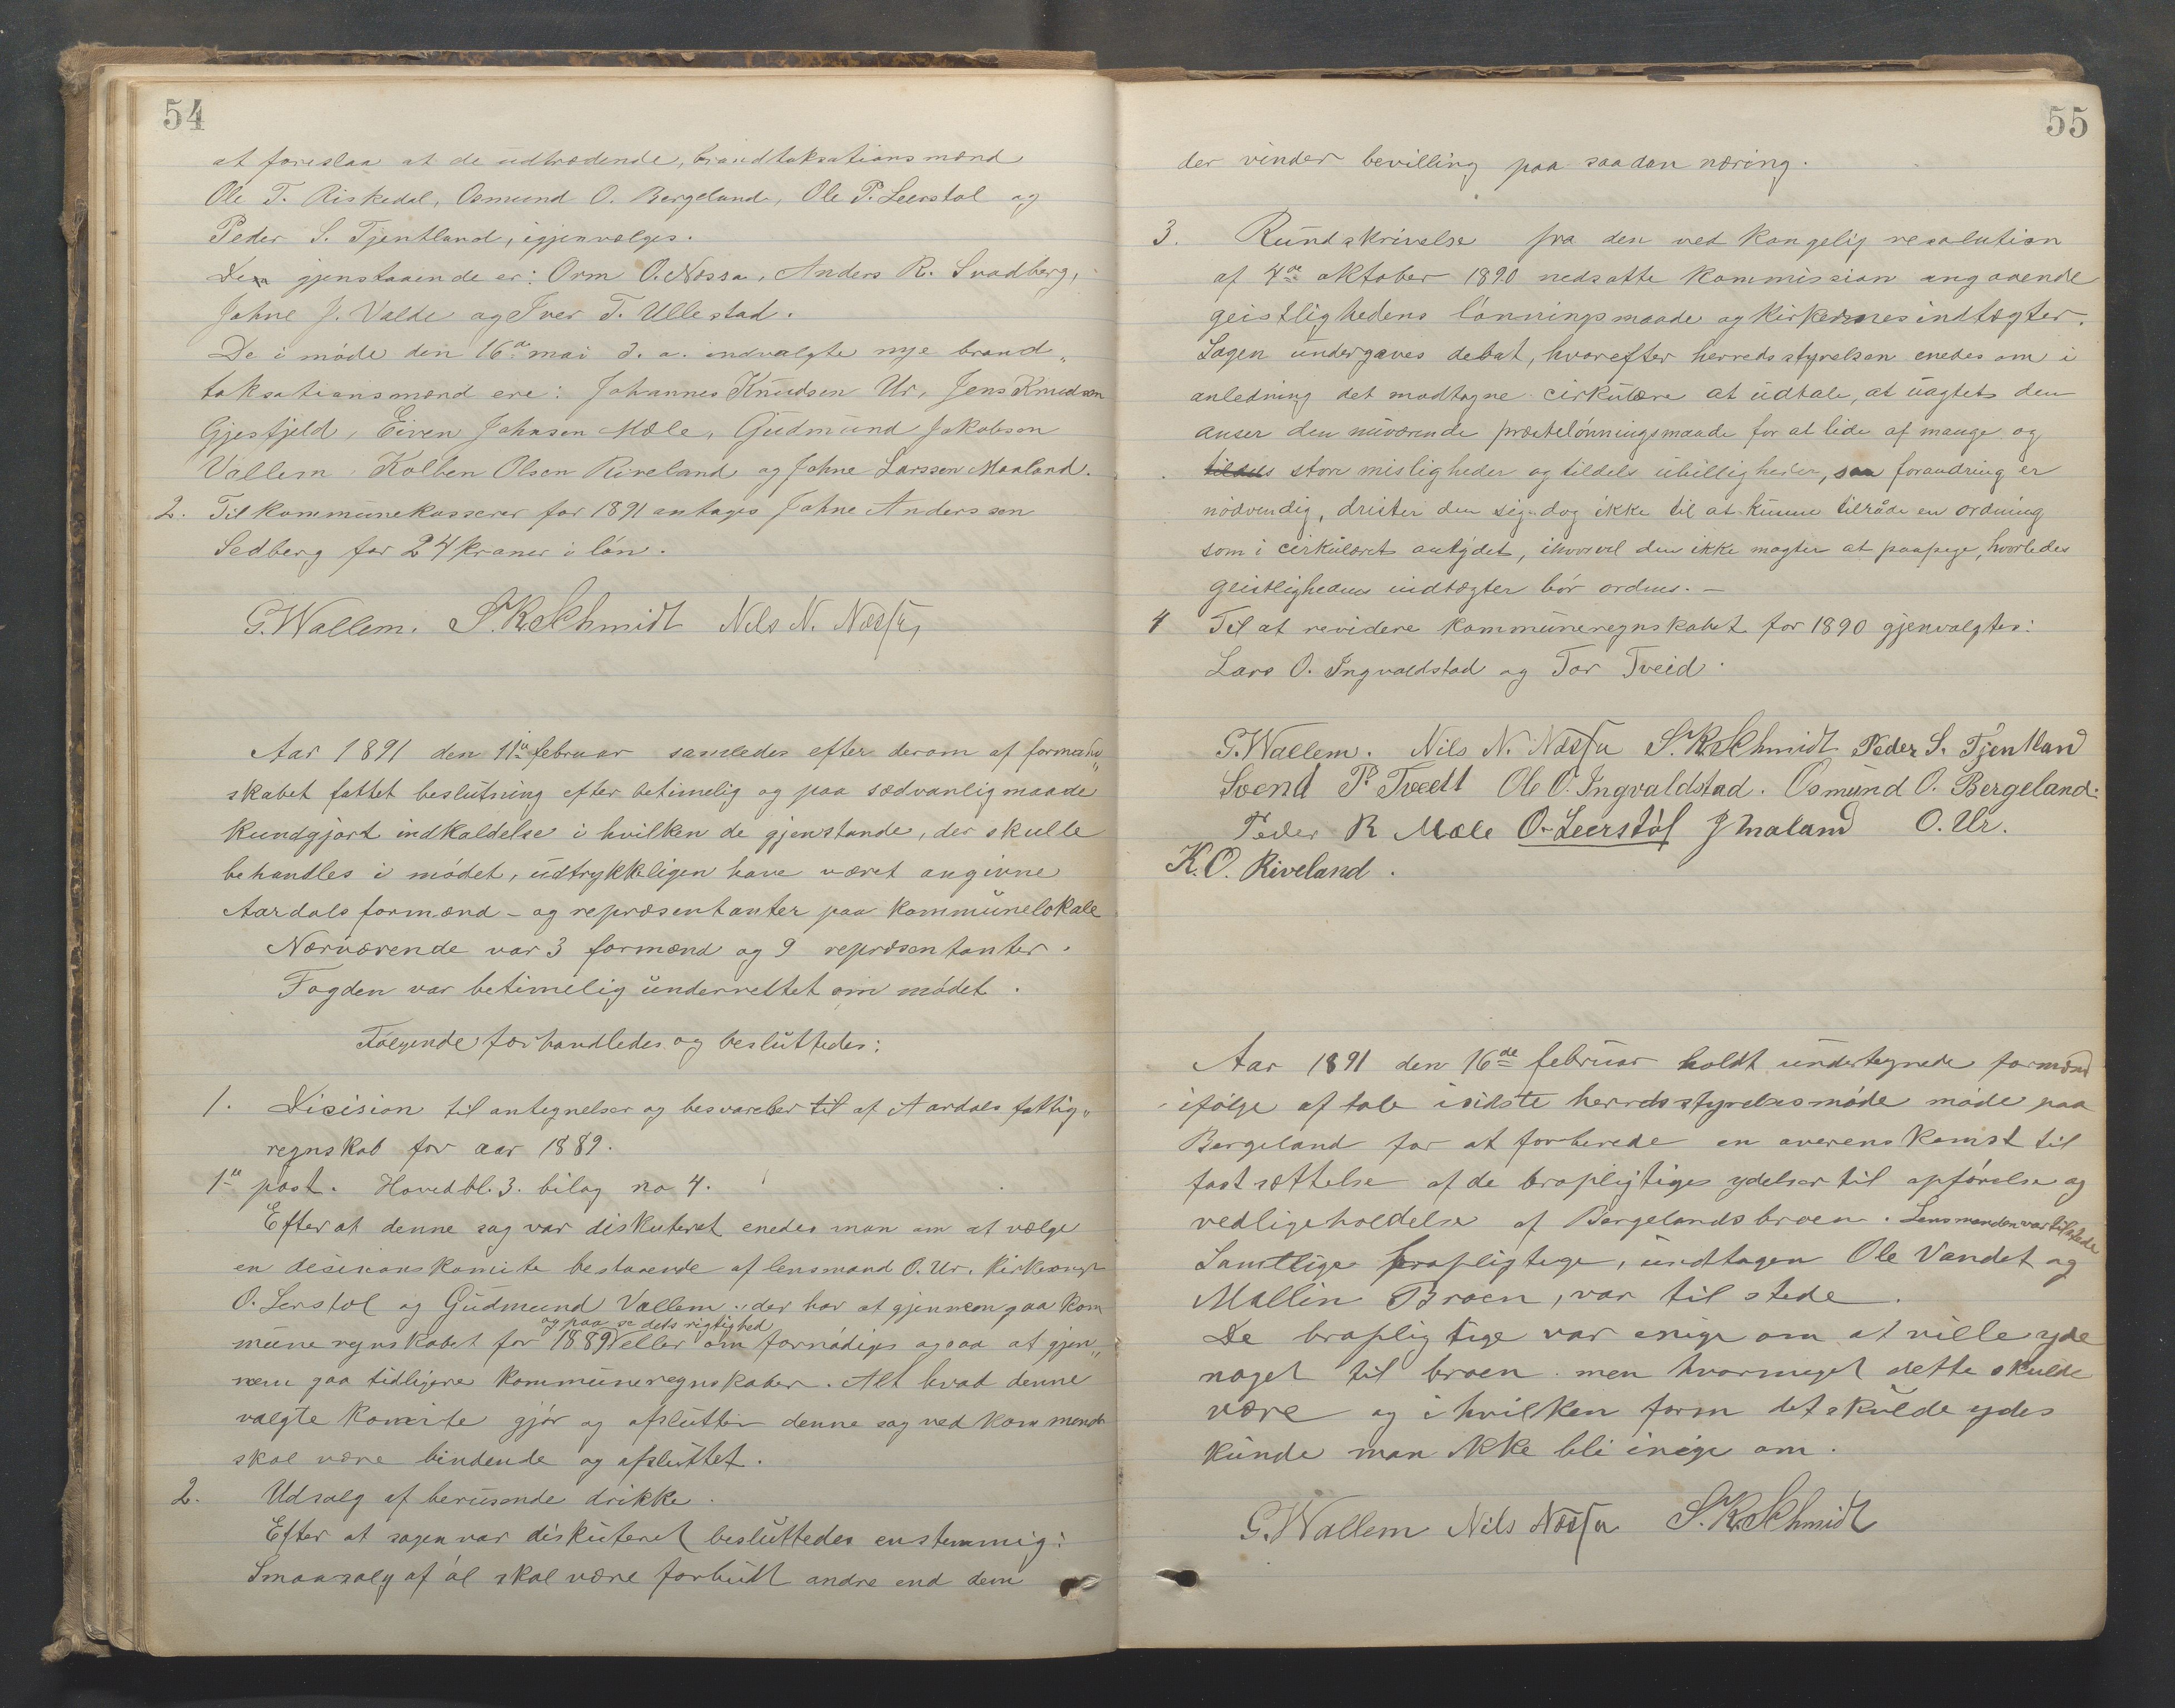 54
at foreslaa at de udtrædende, brandtaksationsmænd
Ole T. Riskedal, Osmund O. Bergeland, Ole P. Leerstøl og
Peder S. Tjentland, igjenvælges.
De gjenstaaende er: Orm O. Nessa, Anders R. Svadberg,
Johne J. Valde og Iver T. Ullestad.
De i møde den 16de mai d. a. indvalgte nye brand„
taksationsmænd ere: Johannes Knudsen Ur, Jens Knudsen
Gjesfjeld, Eiven Johnsen Mæle, Gudmund Jakobson
Vallem, Kolben Olsen Riveland og Johne Larssen Maaland.
2. Til kommunekasserer for 1891 antages Johne Anderssen
Sedberg for 24 kroner i løn.
G. Wallem. S. K. Schmidt Nils N. Næssa
Aar 1891 den 11te februar samledes efter derom af formands„
skabet fattet beslutning efter betimelig og paa sædvanlig maade
kundgjort indkaldelse i hvilken de gjenstande, der skulle
behandles i mødet, udtrykkeligen have været angivne
Aardals formænd- og repræsentanter paa kommunelokale
Nærværende var 3 formænd og 9 repræsentanter.
Fogden var betimelig underrettet om mødet.
Følgende forhandledes og besluttedes:
1. Disision til antegnelser og besvarelser til af Aardals fattig„
regnskab for aar 1889.
1te post. Hovedbl. 3. bilag no 4.
Efter at denne sag var diskuteret enedes man om at vælge
en desisionskomite bestaaende af lensmand O. Ur. kirkesanger
O. Lerstøl og Gudmund Vallem, der har at gjennemgaa kom
og paa se dets rigtighed
muneregnskabet for 1889 eller om fornødiges ogsaa at gjen„
nem gaa tidligere kommuneregnskaber. Alt hvad denne
valgte komite gjør og afslutter denne sag ved kommende
skal være bindende og afsluttet.
2. Udsalg af berusende drikke.
Efter at sagen var diskuteret besluttedes enstemmig:
Smaasalg af øl skal være forbudt andre end dem
55
der vinder bevilling paa saadan næring.
3. Rundskrivelse fra den ved kongelig resolution
af 4de oktober 1890 nedsatte kommission angaaende
geistlighedens lønningsmaade og kirkernes indtægter.
Sagen undergaves debat, hvorefter herredsstyrelsen enedes om i
anledning det modtagne cirkulære at udtale, at uagtet den
anser den nuværende præstelønningsmaade for at lide af mange og
tildels store misligheder og tildels ubilligheder, saa forandring er
nødvendig, drister den sig dog ikke til at kunne tilråde en ordning
som i cirkulæret antydet, ihvorvel den ikke magter at paapege, hvorledes
geistlighedens indtægter bør ordnes. –
4 Til at revidere kommuneregnskabet for 1890 gjenvalgtes:
Lars O. Ingvaldstad og Tor Tveid.
G. Wallem. Nils N. Næssa S. K. Schmidt Peder S. Tjentland
Svend P. Tveett Ole O. Ingvaldstad. Osmund O. Bergeland.
Peder R Mæle O. Leerstøl J Maland O. Ur.
K. O. Riveland.
Aar 1891 den 16de februar holdt undertegnede formænd
ifølge aftale i sidste herredsstyrelsesmøde møde paa
Bergeland for at forberede en overenskomst til
fastsættelse af de bropligtiges ydelser til opførelse og
vedligeholdelse af Bergelandsbroen. Lensmanden var tilstede
Samtlige bropligtige, undtagen Ole Vandet og
Mallin Broen, var til stede.
De bropligtige var enige om at ville yde
noget til broen men hvormeget dette skulde
være og i hvilken form det skulde ydes
kunde man ikke bli enige om.
G. Wallem Nils Næssa S. K. Schmidt